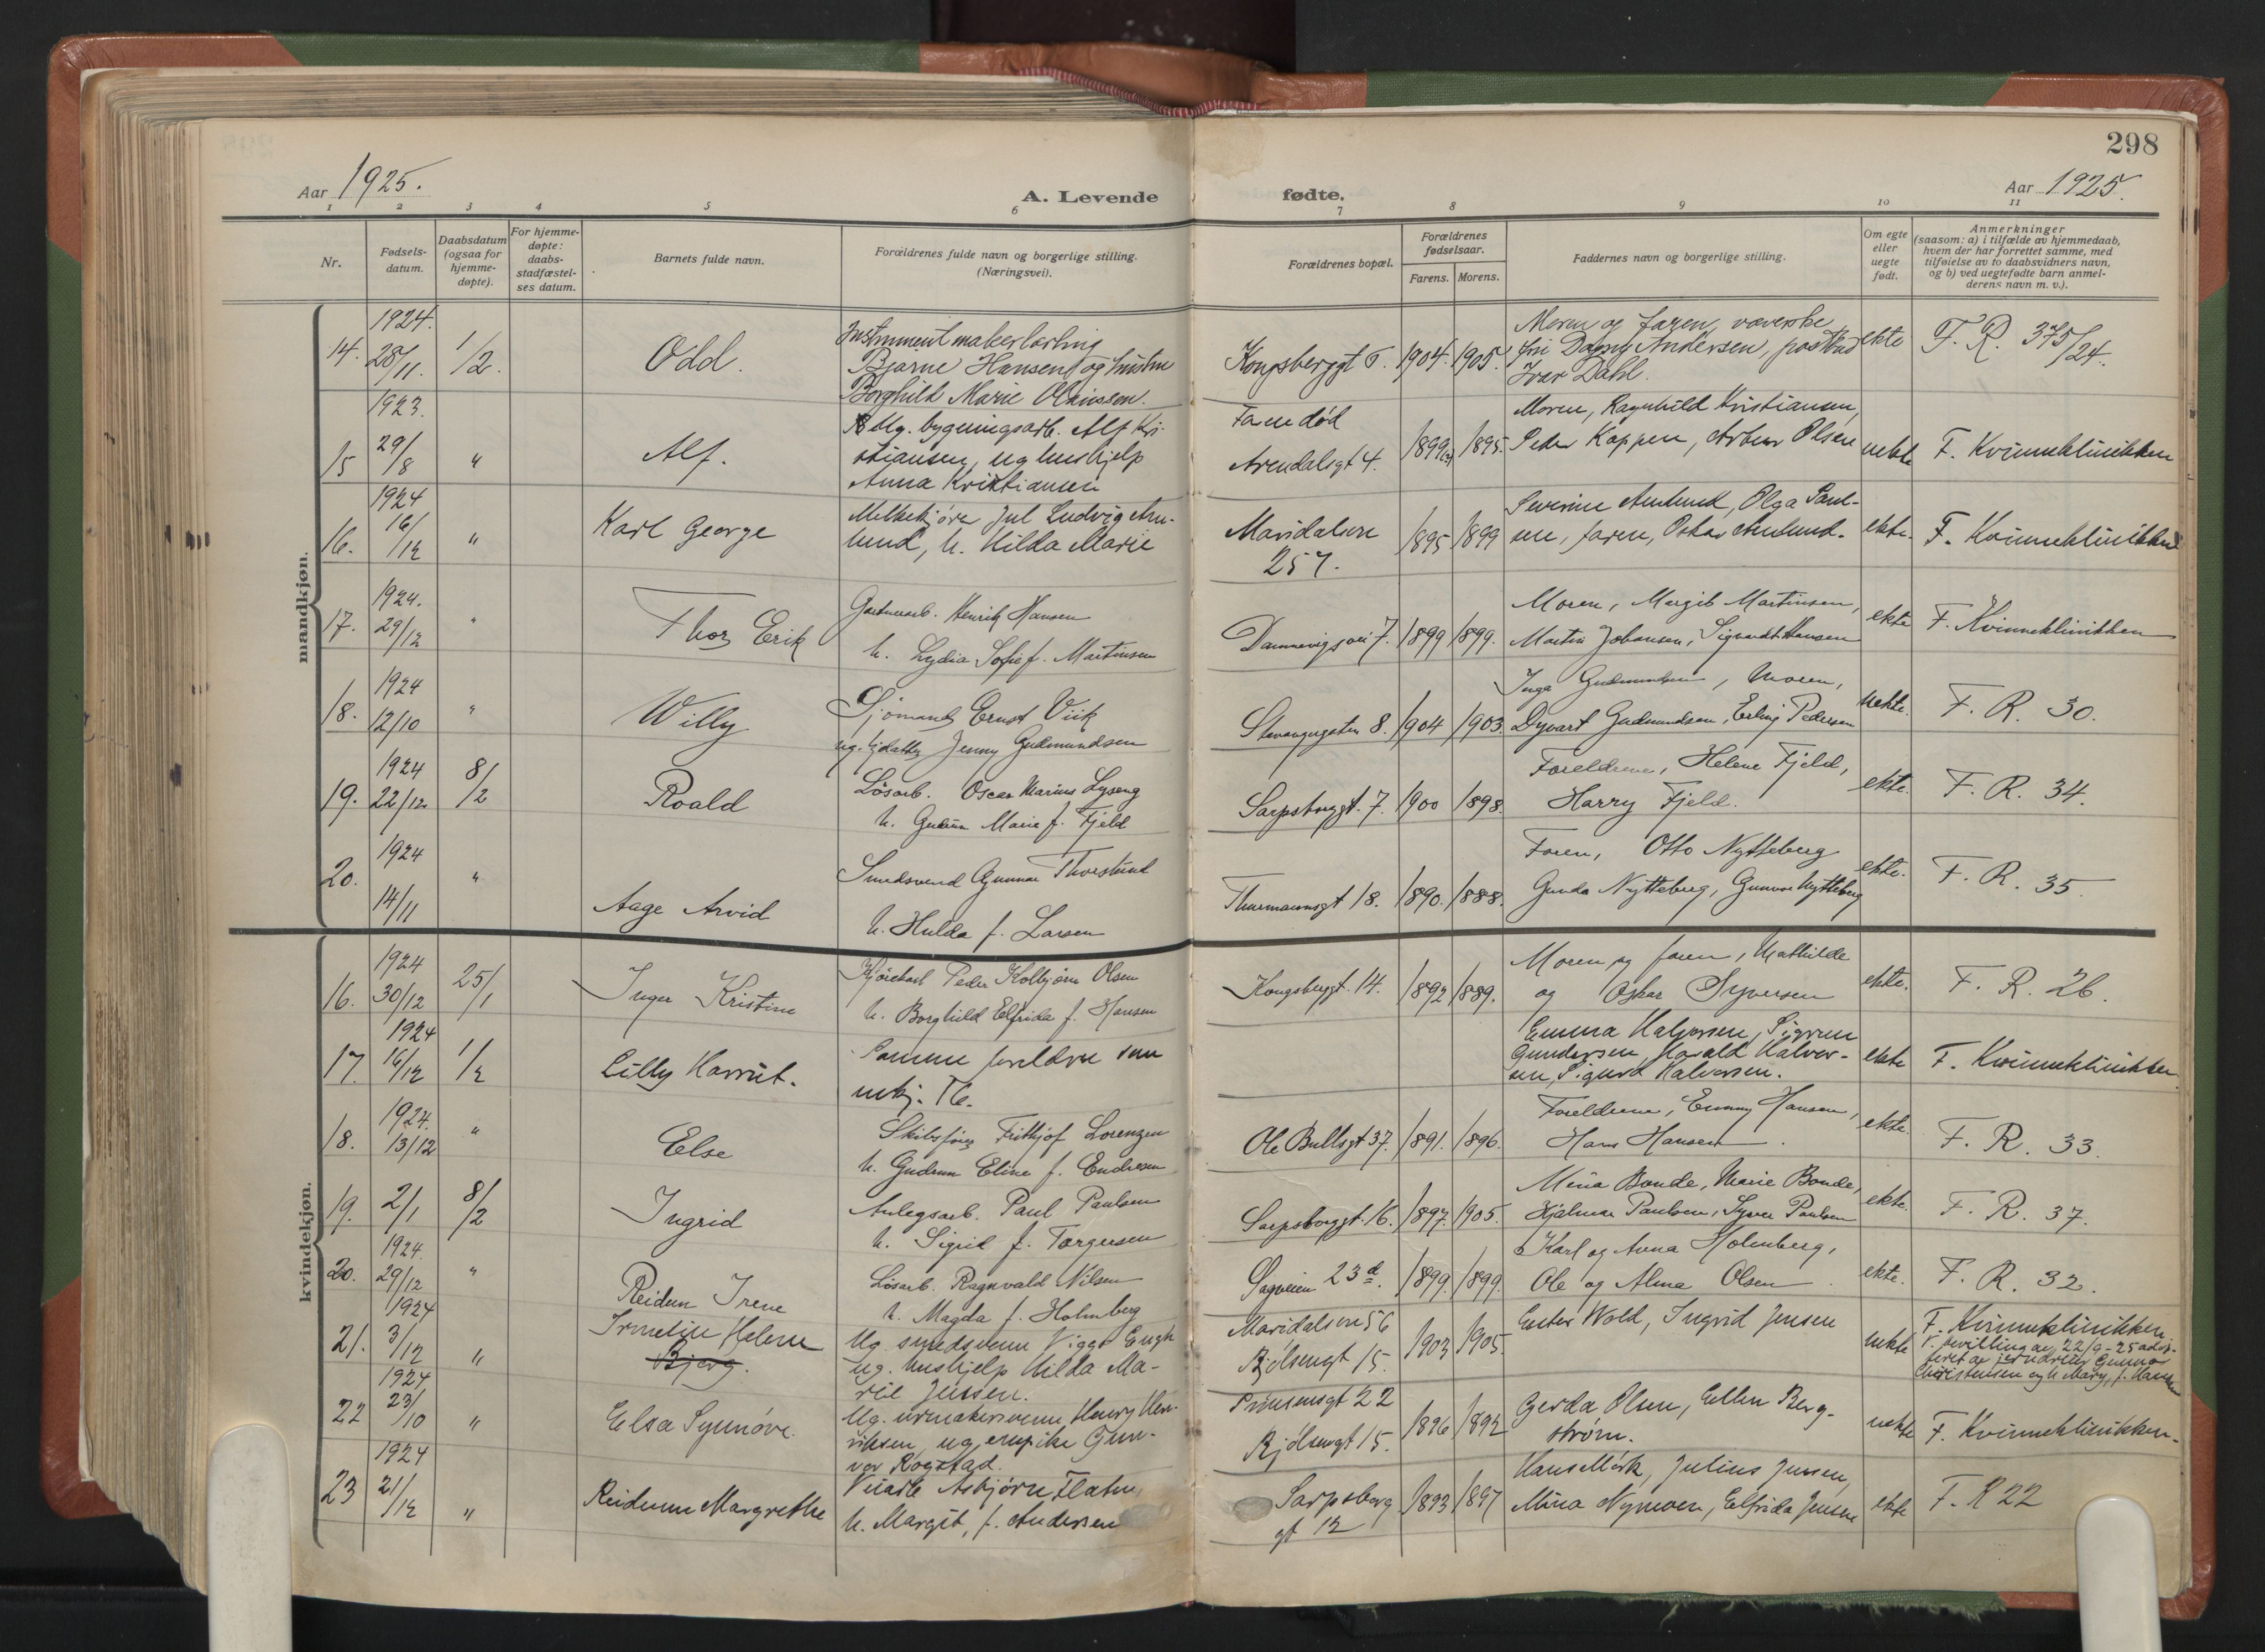 298
Aar 1925.
A. Levende
fødte.
Aar 1925.
1 2 3 4 5 6 7 8 9 10 11
Nr.
Fødsels-
datum.
Daabsdatum
(ogsaa for
hjemme-
døpte).
For hjemme-
døpte:
daabs-
stadfæstel-
ses datum.
Barnets fulde navn.
Forældrenes fulde navn og borgerlige stilling.
(Næringsvei).
Forældrenes bopæl.
Forældrenes
fødselsaar.
Farens. Morens.
Faddernes navn og borgerlige stilling.
Om egte
eller
uegte
født.
Anmerkninger
(saasom: a) i tilfælde av hjemmedaab,
hvem der har forrettet samme, med
tilføielse av to daabsvidners navn,
og b) ved uegtefødte barn anmel-
derens navn m. v.).
mandkjøn.
1924.
14. 28/11. 1/2. Odd.
Instrumentmakerlærling
Bjarne Hansen og hustru
Borghild Marie
Kongsberggt 1904. 1905.
Moren og faren, væverske
frk Dagny Andersen, postbud
Ivar Dahl.
ekte F. R. 375/24.
1923.
15 29/8 " Alf.
Ug. bygningsarb. Alf Kri-
stiansen, ug hushjelp
Anna Kristiansen
Faren død
Arendalsgt 4. 1899 1895.
Moren, Ragnhild Kristiansen,
Peder Koppen, Olsen
uekte F. Kvinneklinikken
1924
16. 16/12 " Karl George
Melkekjører Jul Ludvig Am-
lund, h. Hilda Marie
Maridalsvn
257. 1895 1899
Severine Amlund, Olga Paul-
sen, faren, Oskar Amlund.
ekte. F. Kvinneklinikken
1924.
17. 29/12 " Thor Erik
Henrik Hansen
h. Lydia Sofie f. Martinsen
7. 1899 1899.
Moren, Margit Martinsen,
Martin Johansen, Hansen
ekte F. Kvinneklinikken
1924
18. 12/10 " Willy
Sjømand Ernst Viik
ug. Jenny Gudmundsen
Stavangergaten 8. 1904 1903.
Inga Gudmundsen, Moren,
Dyvart Gudmundsen, Erling Pedersen
uekte. F. R. 30.
1924
19. 22/12 8/2 Roald
Løsarb. Oscar Marius Lyseng
h. Gudrun Marie f. Fjeld
Sarpsborggt. 7. 1900 1898.
Foreldrene, Helene Fjeld,
Harry Fjeld.
ekte. F. R. 34.
1924
20. 14/11 " Aage Arvid
Smedsvend Gunnar Thorstund
h. Hulda f. Larsen
Thurmannsgt 18. 1890. 1888.
Faren, Otto Nytteberg
Gunda Nytteberg, Gunvor Nytteberg
ekte. F. R. 35
kvindekjøn.
1924
16. 30/12 25/1 Inger Kristine
Peder Kolbjørn Olsen
h. Borghild Elfrida f. Hansen
Kongsberggt. 14. 1892 1889.
Moren og faren, Mathilde
og Oskar Syversen
ekte. F. R. 26.
1924
17. 16/12 1/2 Lilly Harriet.
Samme foreldre som
mkj. 16.
Emma Halvorsen, Sigrun
Gundersen, Harald Halvor-
sen, Sigurd Halvorsen.
ekte F. Kvinneklinikken.
1924.
18. 13/12 " Else
Skibsfører Fritjof Lorenzen
h. Gudrun Eline f. Endresen
Ole Bullsgt 37. 1891. 1896.
Foreldrene, Emmy Hansen,
Hans Hansen.
ekte. F. R. 33.
19. 2/1 8/2 Ingrid
Anlegsarb. Paul Paulsen
h. Sigrid f. Torgersen
Sarpsborggt. 16. 1897. 1905.
Mina Bonde, Marie Bonde,
Hjalmar Paulsen, Syver Paulsen
ekte. F. R. 37.
1924.
20. 29/12 " Reidun Irene
Løsarb. Ragnvald Nilsen
h. Magda f. Holmberg
Sagveien 23d. 1899. 1899.
Karl og Anna Holmberg,
Ole og Alma Olsen.
ekte. F. R. 32.
1924
21. 3/12 " Irmelin Helene
Bjerg.
Ug. smedsvenn Viggo Engh
ug. hushjelp Hilda Ma-
rie Jensen.
Maridalsvn 56
Bjølsengt 15. 1903 1905.
Ester Wold, Ingrid Jensen
uekte F. Kvinneklinikken
V. bevilling av 22/9-25 adop-
teret av jerndreier Gunnar
Christensen og h. Mary, f. Hansen
1924
22 23/10 " Elsa Synnøve.
Ug. urmakersvenn Henry Hen-
riksen, ug. Gun-
vor Rogstad.
Prinsensgt 22
Bjølsengt 15. 1896 1892
Gerda Olsen, Ellen Berg-
strøm.
uekte F. Kvinneklinikken.
1924
23 21/12 " Reidunn Margrethe
Asbjørn Flatun
h. Margit, f. Andersen
Sarpsborg
gt 12 1893 1897
Hans Mørk, Julius Jensen,
Mina Nymoen, Elfrida Jensen
ekte F. R 22